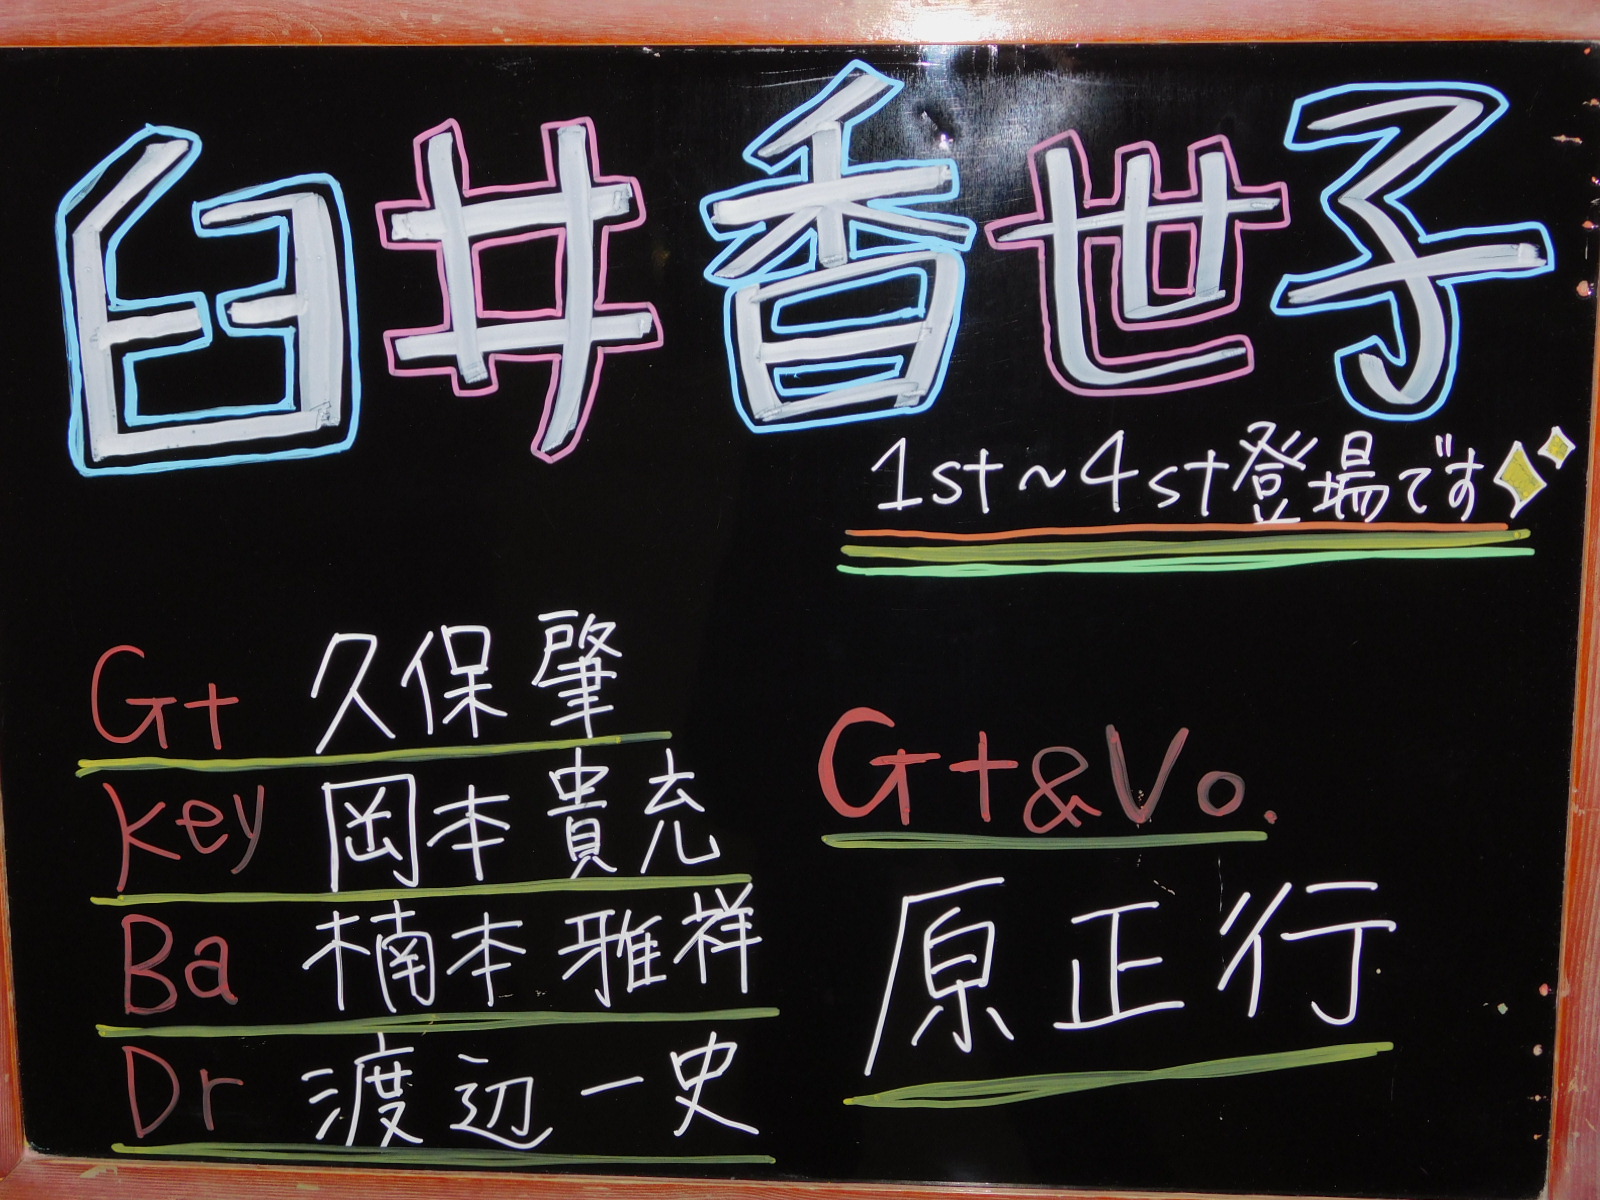 臼井香世子
1st~4st登場です
Gt 久保 肇
Key 岡本 貴充
Ba 楠本 雅祥
Dr 渡辺 一史
Gt&Vo.
原 正行